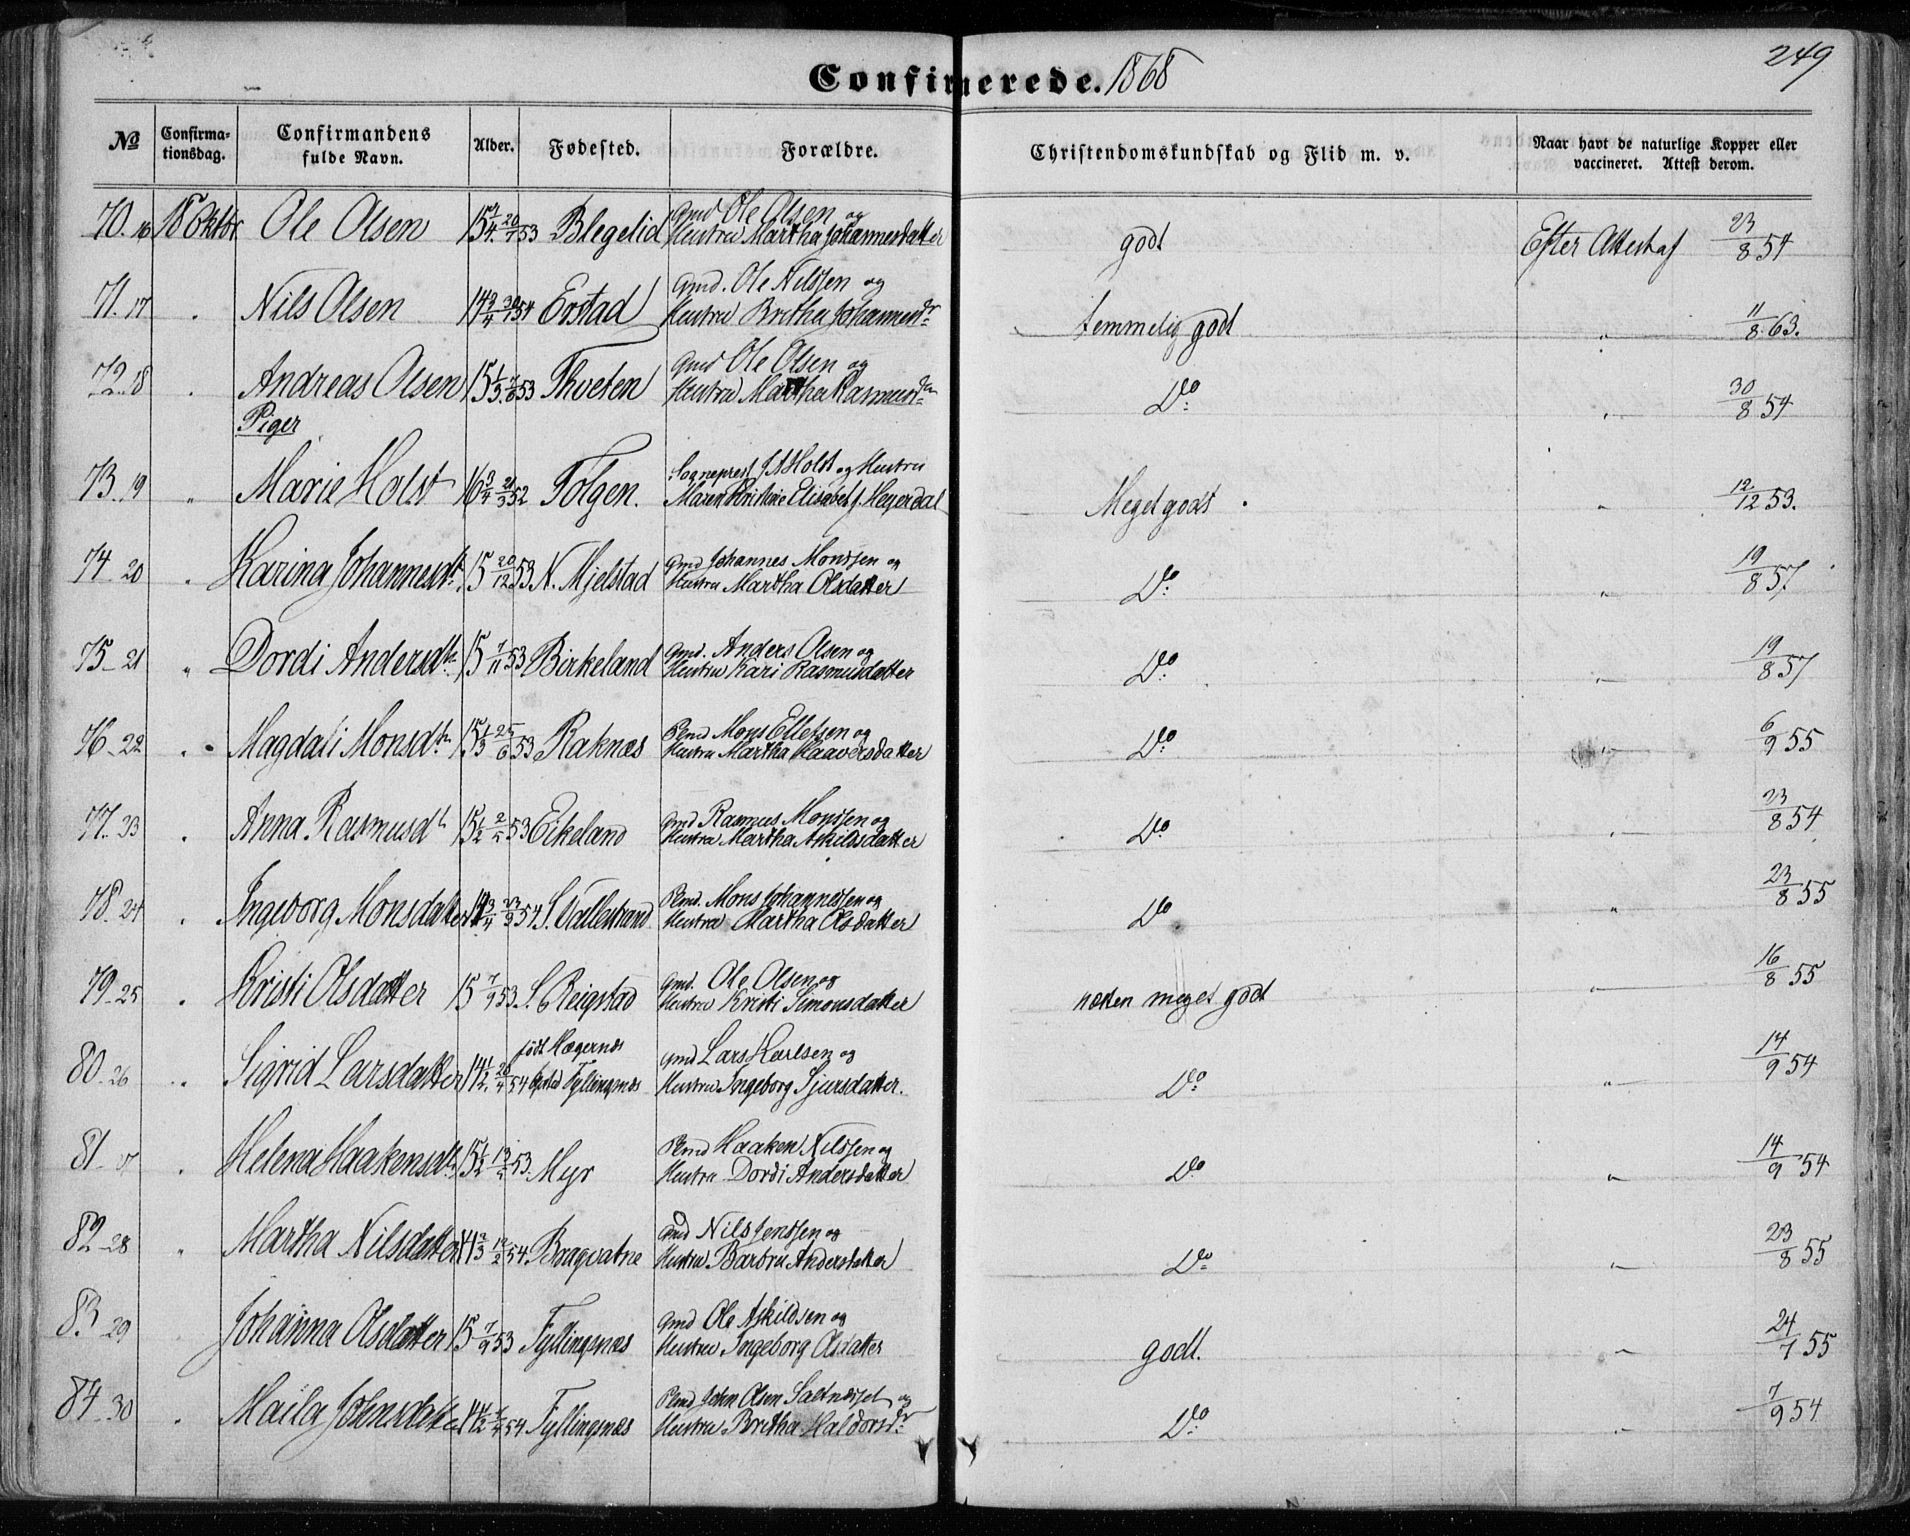 249
Confirmerede. 1868
No
Confirmationsdag.
Confirmandens fulde Navn.
Alder.
Fødested.
Forældre.
Christendomskundskab og Flid m. v.
Naar havt de naturlige Kopper eller vaccineret. Attest derom.
70. 16 18 Oktbr Ole Olsen 15 3/4 20/1 53 Blegelid Gmd Ole Olsen og Hustru Martha Johannesdatter godt Efter Attest af 23/8 54
71. 17 " Nils Olsen 14 3/4 54 Erstad Gmd. Ole Nilssen og Hustru Britha Johannesdr temmelig godt " 11/8 63.
72. 18 " Andreas Olsen 15 1/3 53 Thveten Gmd Ole Olsen og Hustru Martha Rasmusdr Do " 30/8 54
Piger
73. 19 " Marie Holst 16 3/4 52 Tolgen. Sogneprest J A Holst og Hustru Maren Kristine Elisabeth f. Heyerdal Meget godt " 12/12 53.
74. 20 " Karina Johannesdt. 15 20/12 53 N. Mjelstad Gmd Johannes Monssen og Hustru Martha Olsdatter Do " 19/8 57
75. 21 " Dordi Andersdtr 15 7/11 53 Birkeland Gmd. Anders Olsen og Hustru Kari Rasmusdatter Do " 19/8 57
76. 22 " Magdali Monsdtr 15 1/3 25/6 53 Raknæs Plmd Mons Ellefsen og Hustru Martha Haaversdatter Do " 6/9 55
77. 23 " Anna Rasmusdt 15 1/2 53 Eikeland Gmd Rasmus Monssen og Hustru Martha Askildsdatter Do " 23/8 54
78. 24 " Ingeborg Monsdatter 14 3/4 54 S. Vallestrand Plmd. Mons Johannessen og Hustru Martha Olsdatter Do " 23/8 55
79. 25 " Kristi Olsdatter 15 7/9 53. S. Reigstad Gmd. Ole Olsen og Hustru Kristi Simonsdatter næsten meget godt " 16/8 55
80. 26 " Sigrid Larsdatter 14 1/2 54 født Hægernæs Opsted Fyllingsnæs Gmd Lars Karlsen og Hustru Ingeborg Sjursdatter. Do " 14/9 54
81. 27 " Helena Haakensdt. 15 1/2 53. Myr Plmd Haaken Nilssen og Hustru Dordi Andersdatter Do " 14/9 54
82. 28 " Martha Nilsdatter 14 2/3 12/2 54. Bragvatne Gmd Nils Jenssen og Hustru Barbru Andersdatter Do " 23/8 55
83. 29 " Johanna Olsdatter 15 7/9 53 Fyllingsnæs Gmd Ole Askildsen og Hustru Ingeborg Olsdatter godt. " 24/7 55
84. 30 " Maila Johnsdatter 14 1/2 54 Fyllingsnæs Plmd John Olsen og Hustru Britha Haldorsdr Do " 7/9 54